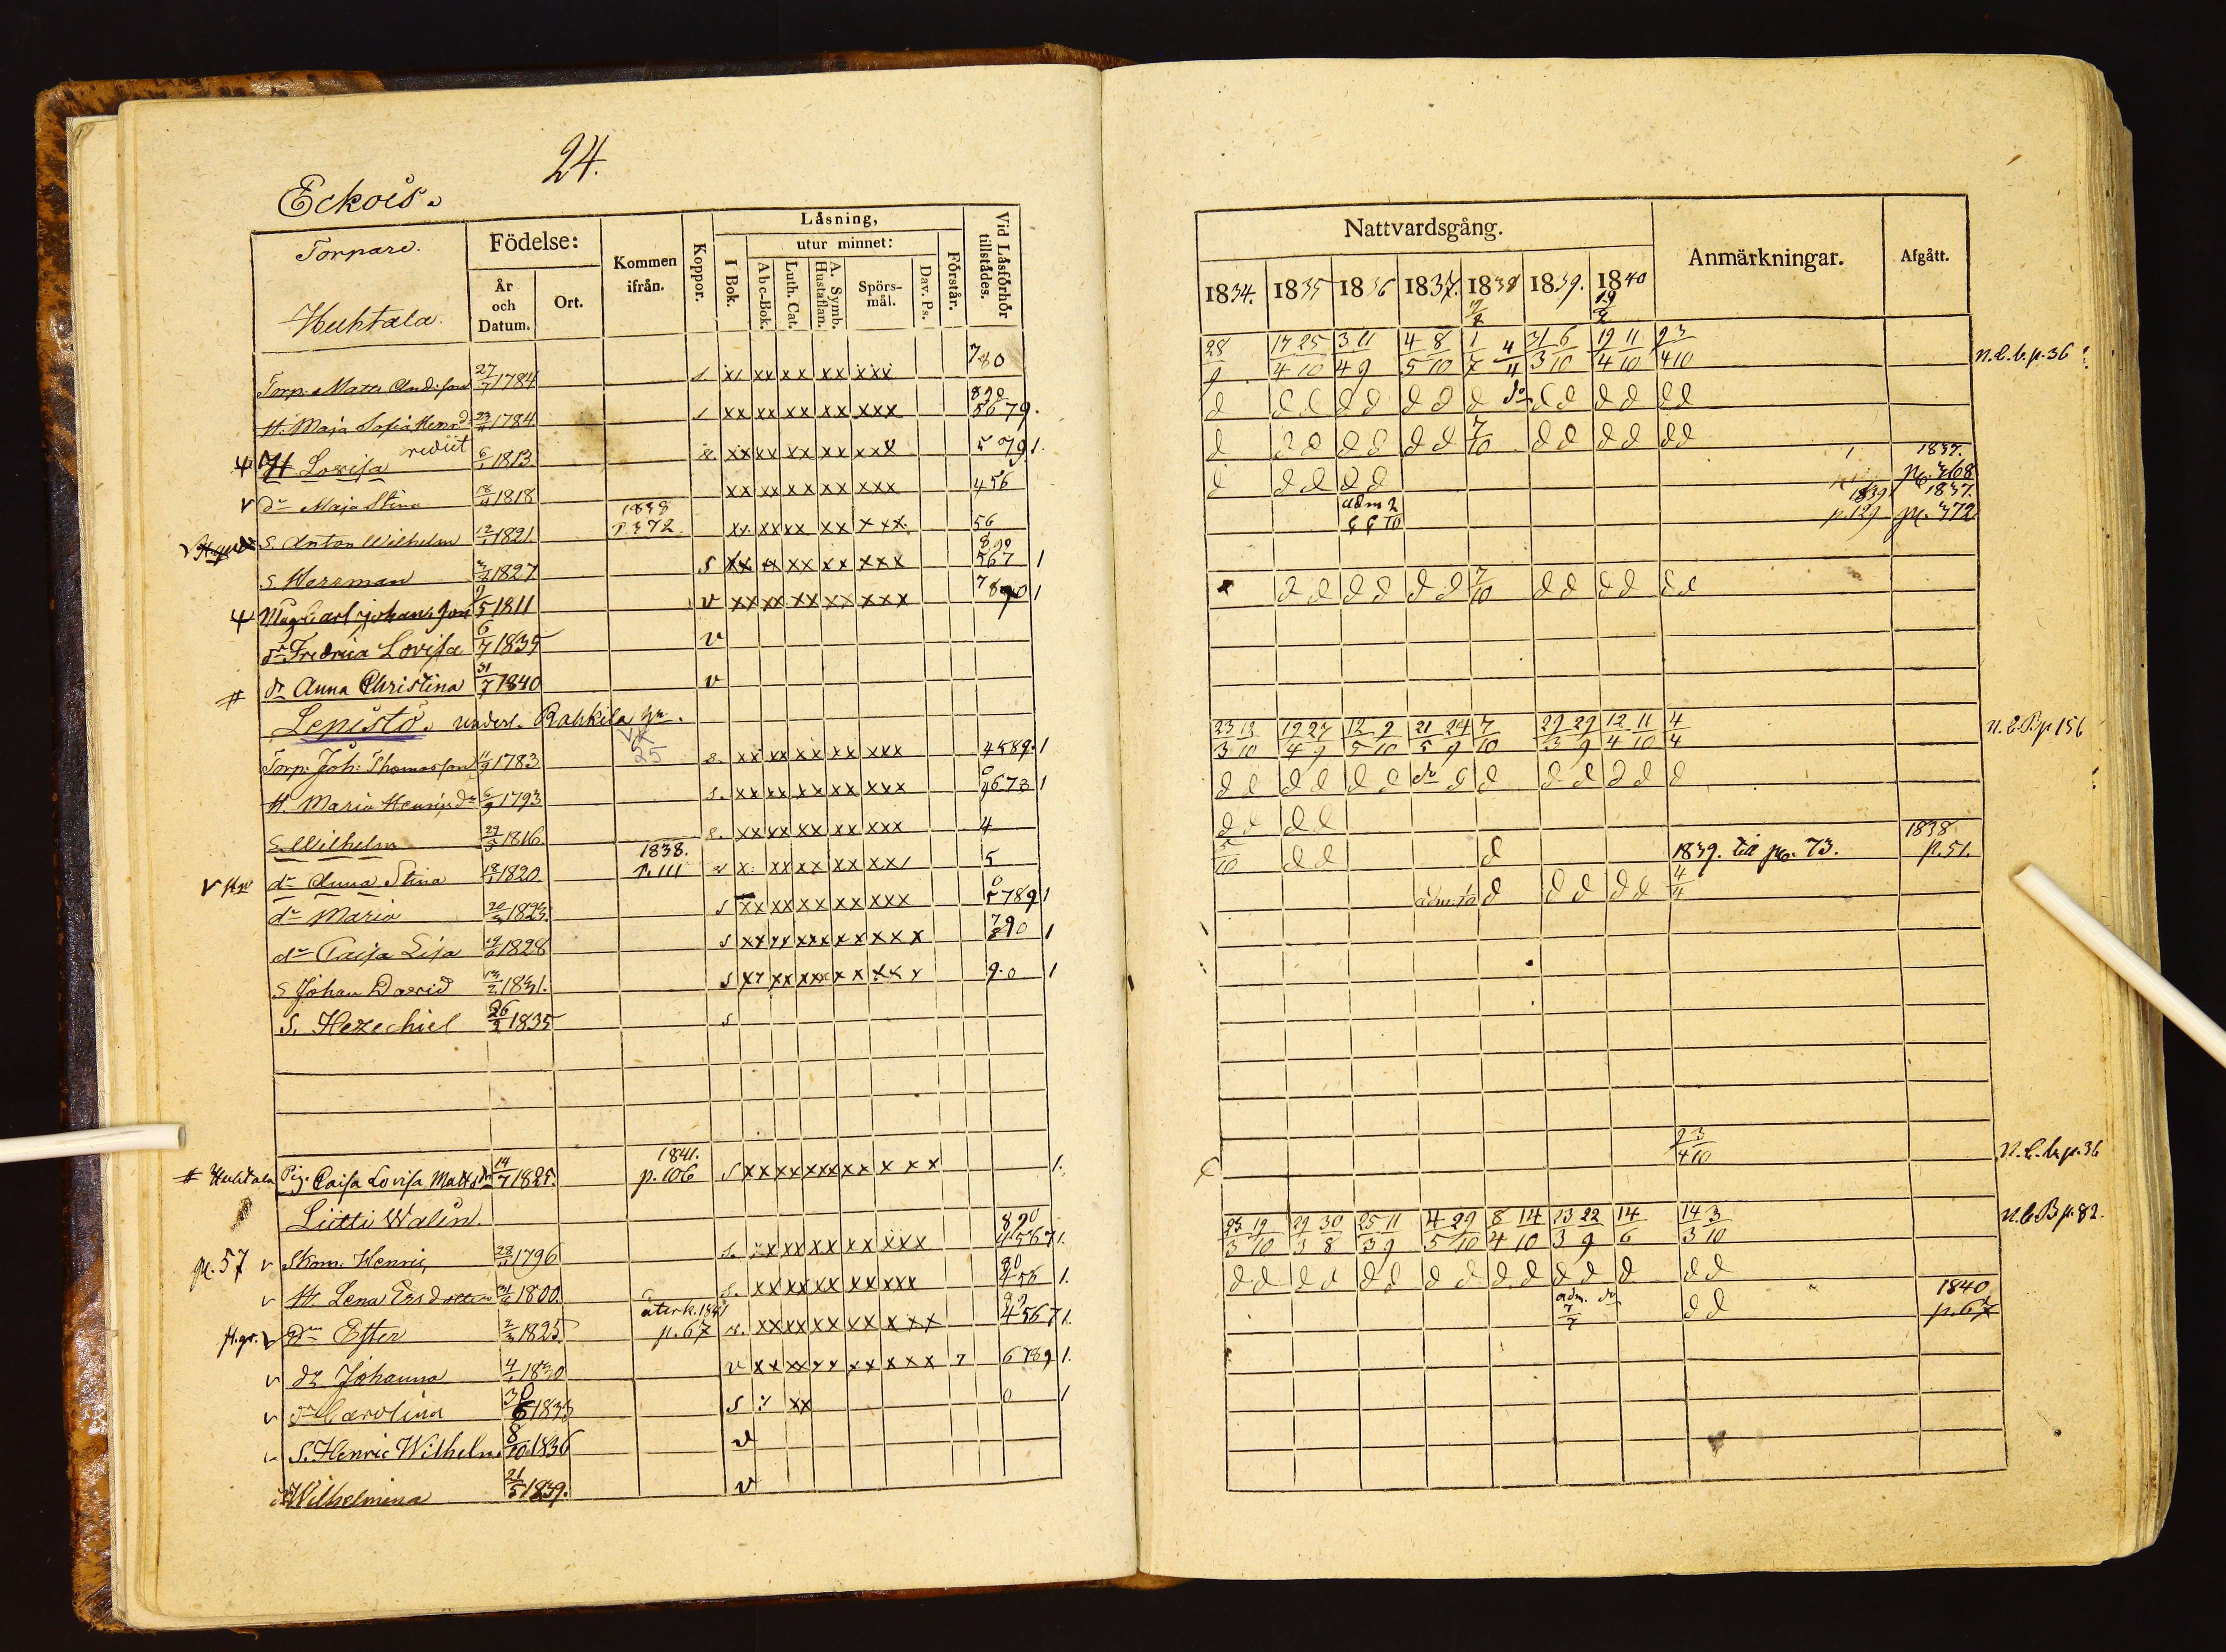 24.
Eckois.
Torpare.
Huhtala.
Födelse:
År och Datum.
Ort.
Kommen ifrån.
Koppor.
Läsning,
I Bok.
utur minnet:
Abc-Bok.
Luth. Cat.
A. Symb. Hustaflan.
Spörs-mål.
Dav. Ps.
Förstår.
Vid Läsförhör tillstädes.
Torp. Matts And:son 27/7 1784 s. x/ xx xx xx xxx 780
H. Maja Sofia Henrsd 1784 xx xx xx xx xxx 890 5679.
Lovisa rediit 6/1 1813 xx xx xx xx xxx 5791.
dr Maja Stina 18/4 1818 xx xx xx xx xxx 456
s. Anton Wilhelm 12/1 1821 1838 P. 372 xx xx xx xx xxx. 56
s Herrman 1827 s xx xx xx xx xxx 890 567 1
Måg Carl Johansson 9/5 1811 v xx xx xx xx xxx 7890 1
dr Fredrica Lovisa 6/7 1835 v
dr Anna Christina 31/7 1840 v
Lepistö. underl. Rahkila
VK 25
Torp. Joh: Thomasson 1783 s. xx xx xx xx xxx 4589. 1
H. Maria Henricsdr 6/9 1793 s. xx xx xx xx xxx 0 9673 1
s. Wilhelm 1816 s. xx xx xx xx xxx 4
dr Anna Stina 18/1 1820 1838. P. 111 v x: xx xx xx xx/ 5
dr Maria 1823. s xx xx xx xx xxx 0 5789 1
dr Caisa Lisa 1828 s xx xx xxx xx xxx 790 1
s Johan David 1831. s 9.0 1
s. Hezechiel 26/2 1835 s
# Huhtala Pig. Caisa Lovisa Mattsdr 14/7 1825. 1841. p. 106 s xx xx xxxxx x x x 1.
Liitti Walen.
p. 57 v Skom. Henric 28/ 1796 s. xx xx xx xx xxx 890 4567 1.
v H. Lena Ersdotter 1800. s. xx xx xx xx xxx 90 456 1.
v dr Ester 1825 återk. 1841 p. 67 xx xx xx xx xxx 90 4567 1.
v dr Johanna 4/ 1830 v xx xx xx xx xxx 7 6789 1.
v dr Carolina 30/6 1833 s xx 0 1
s. Henric Wilhelm 8/10 1836 v
dr Wilhelmina 21/5 1839. v
Nattvardsgång.
1834. 1835 1836 1837. 1838 1839. 1840
Anmärkningar.
Afgått.
28/9 17/4 25/10 3/4 11/9 4/5 8/10 1/7 4/11 31/3 6/10 19/4 11/10 9/4 3/10 N. C. b. p. 36
d dd dd dd d do dd dd dd
d dd dd dd 7/10 dd dd dd
d dd dd 1837. p. 368
adm 2 1839 p. 129 1837. p. 372
dd dd dd 7/10 dd dd dd
23/3 12/10 19/4 27/9 12/5 9/10 21/5 24/9 7/10 29/3 29/9 12/4 11/10 4/4 N. C. B. p 156
dd dd dd do d d dd dd d
dd dd
5/10 dd d 1839. till p. 73. 1838 p. 51.
d dd dd 4/4
9/4 3/10 N. C. b. p. 36
23/3 19/10 29/3 30/8 25/3 11/9 4/5 29/10 8/4 14/10 23/3 22/9 14/6 14/3 3/10 N. C. B p. 82.
dd dd dd dd dd dd d dd
adm. do 7/7 dd 1840 p. 67